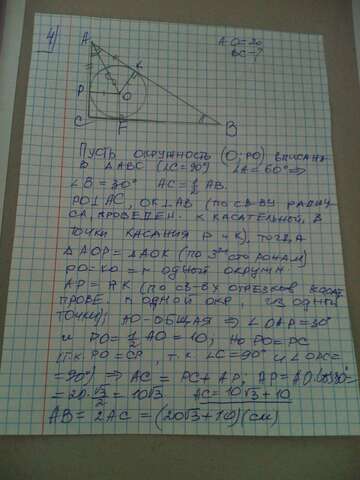 4)
A
AO=20
BC-?
K
P
O
C
F
B
Пусть окружность (O; PO) вписана
в ΔABC (∠C=90°) ∠A=60° ⇒
∠B=30° AC=½ AB.
PO⊥AC, OK⊥AB (по св-ву радиу
са, проведен. к касательной, в
точки касания P и K), тогда
ΔAOP=ΔAOK (по 3ем сторонам)
PO=KO=r одной окружн
AP=AK (по св-ву отрезков касат
прове. к одной окр. из одной
точки); AO-общая ⇒ ∠OAP=30°
и PO=½ AO=10, но PO=PC
(т.к PO=CF, т.к ∠C=90° и ∠OPC=
=90°) ⇒ AC=PC+AP; AP=AO·cos30°=
=20·√3/2=10√3 AC=10√3+10
AB=2AC=(20√3+10)(см)